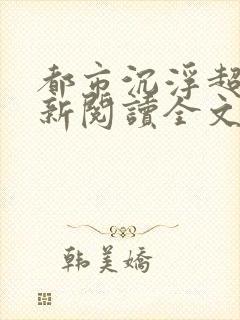 都市沉浮超
新閱讀全文
韩美嬌